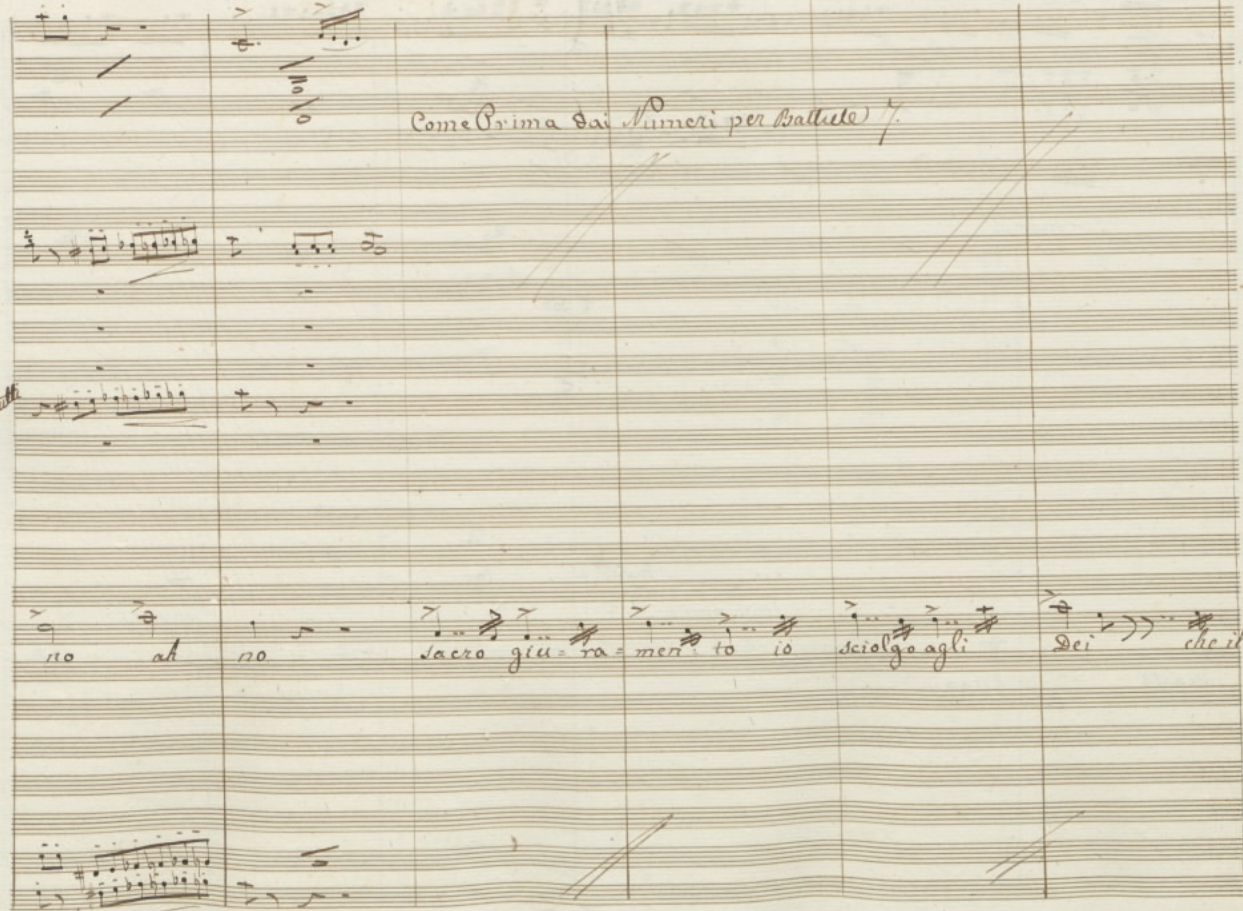 Come Prima dai Numeri per Battute 7.
no ah no sacro giu = ra = men = to io sciolgo agli Dei che il